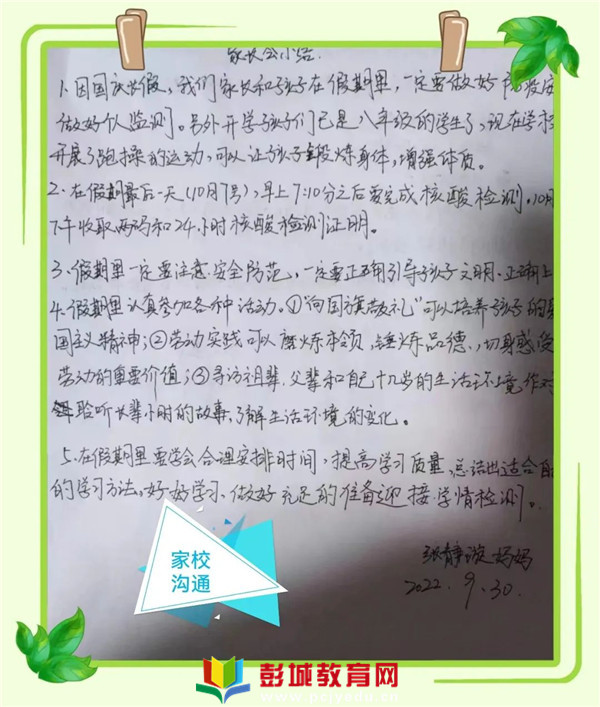 家长会小结.
1.因国庆长假，我们家长和孩子在假期里，一定要做好防疫
做好个人监测。另外开学孩子们已是八年级的学生了，现在学校
开展了跑操的运动，可以让孩子锻炼身体，增强体质。
2.在假期最后一天(10月7号)，早上7:10分之后要完成核酸检测。10月
下午收取两码和24小时核酸检测证明。
3.假期里一定要注意安全防范，一定要正确引导孩子文明、正确上
4.假期里认真参加各种活动。①“向国旗敬礼”可以培养孩子的
国主义精神；②劳动实践可以磨炼本领，锤炼品德，切身感受
劳动的重要价值；③寻访祖辈、父辈和自己十几岁的生活环境作对
验听长辈小时的故事，了解生活环境的变化。
5.在假期里要学会合理安排时间，提高学习质量，总结出适合自
的学习方法。好好学习、做好充足的准备迎接学情检测。
张静璇妈妈
2022.9.30.
家校
沟通
彭城教育网